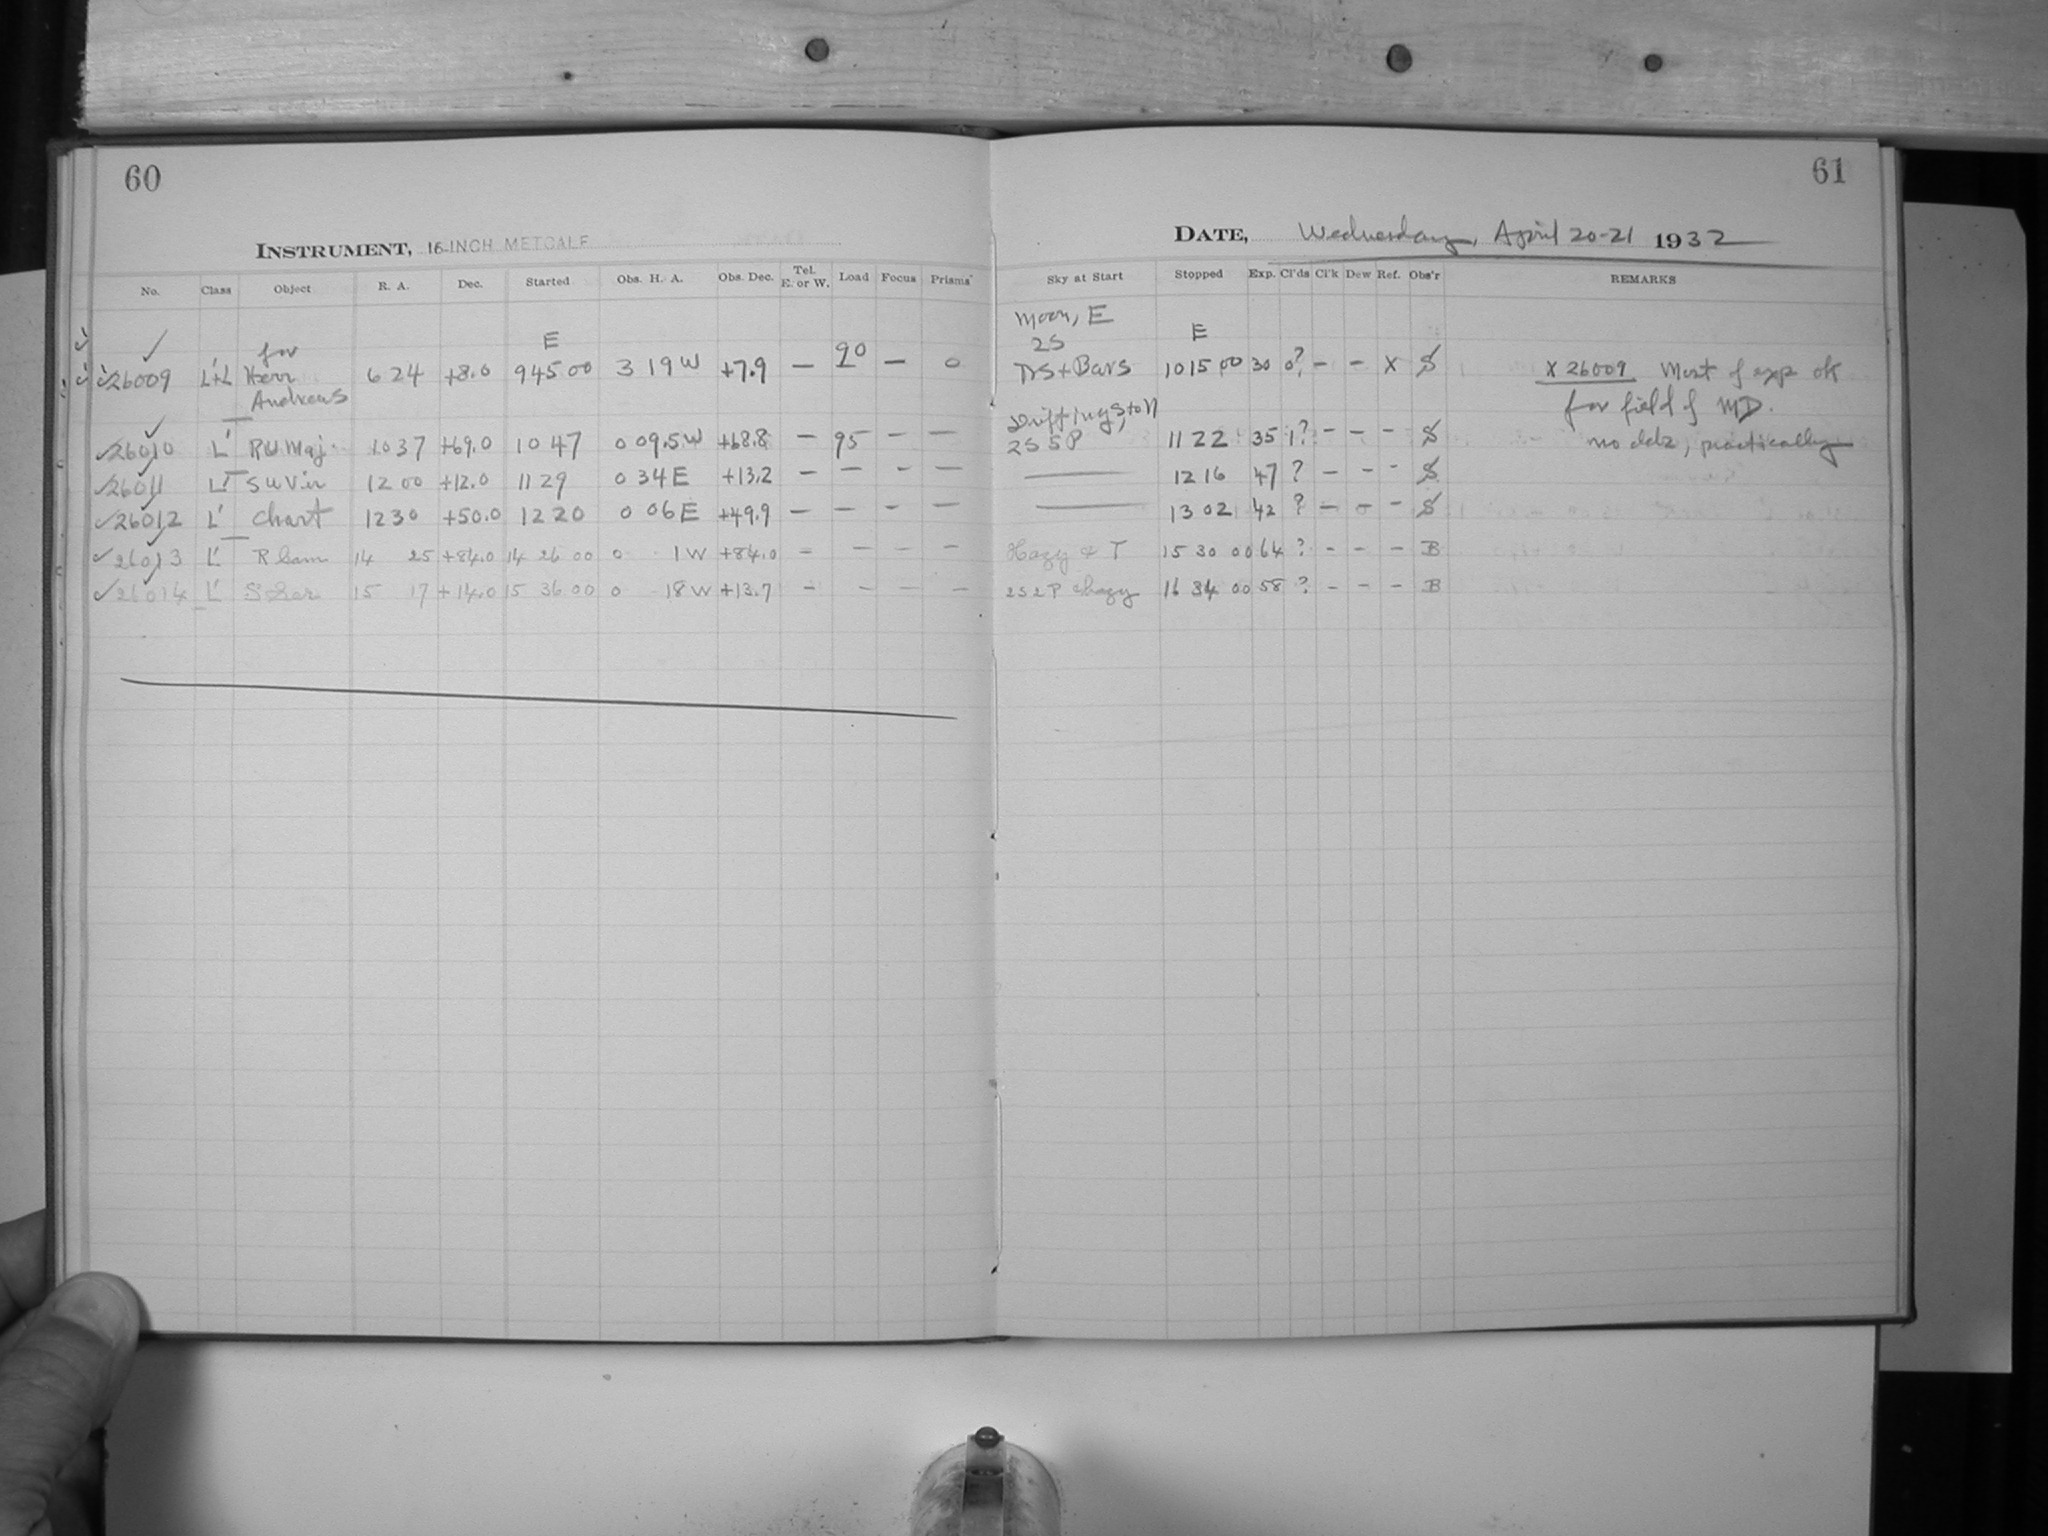 60
INSTRUMENT, 16-INCH METCALF
No. Class Object R. A. Dec. Started Obs. H. A. Obs. Dec. Tel. E. or W. Load Focus Prisms
for E
26009 L'+L Herr 6 24 +8.0 9 45 00 3 19 W +7.9 — 90 — 0
Andrews
26010 L' RUMaj. 10 37 +69.0 10 47 0 09.5 W +68.8 — 95 — —
26011 L' SUVir 12 00 +12.0 11 29 0 34 E +13.2 — — — —
26012 L' Chart 12 30 +50.0 12 20 0 06 E +49.9 — — — —
26013 L' R Cam 14 25 +84.0 14 26 00 0 1 W +84.0 — — — —
26014 L' S Ser 15 17 +14.0 15 36 00 0 18 W +13.7 — — — —
61
DATE, Wednesday, April 20-21 1932
Sky at Start Stopped Exp. Cl'ds Cl'k Dew Ref. Obs'r REMARKS
Moon, E
2S E
DS + Bars 10 15 00 30 0? — — X S X 26009 Most of exp ok
Drifting, for field of MD.
2S5P 11 22 35 1? — — — S no clds, practically
— 12 16 47 ? — — — S
— 13 02 42 ? — — — S
Hazy & T 15 30 00 64 ? — — — B
2S2P & hazy 16 34 00 58 ? — — — B